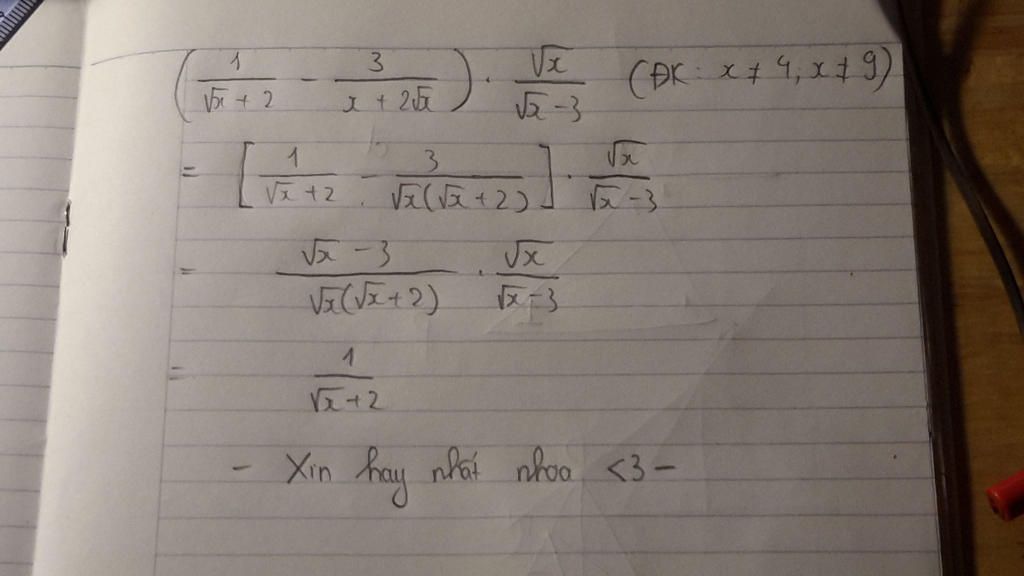 (1/(√x + 2) − 3/(x + 2√x)) · √x/(√x − 3) (ĐK: x ≠ 4; x ≠ 9)
= [1/(√x + 2) − 3/(√x(√x + 2))] · √x/(√x − 3)
= (√x − 3)/(√x(√x + 2)) · √x/(√x − 3)
= 1/(√x + 2)
– Xin hay nhất nhoa <3 –